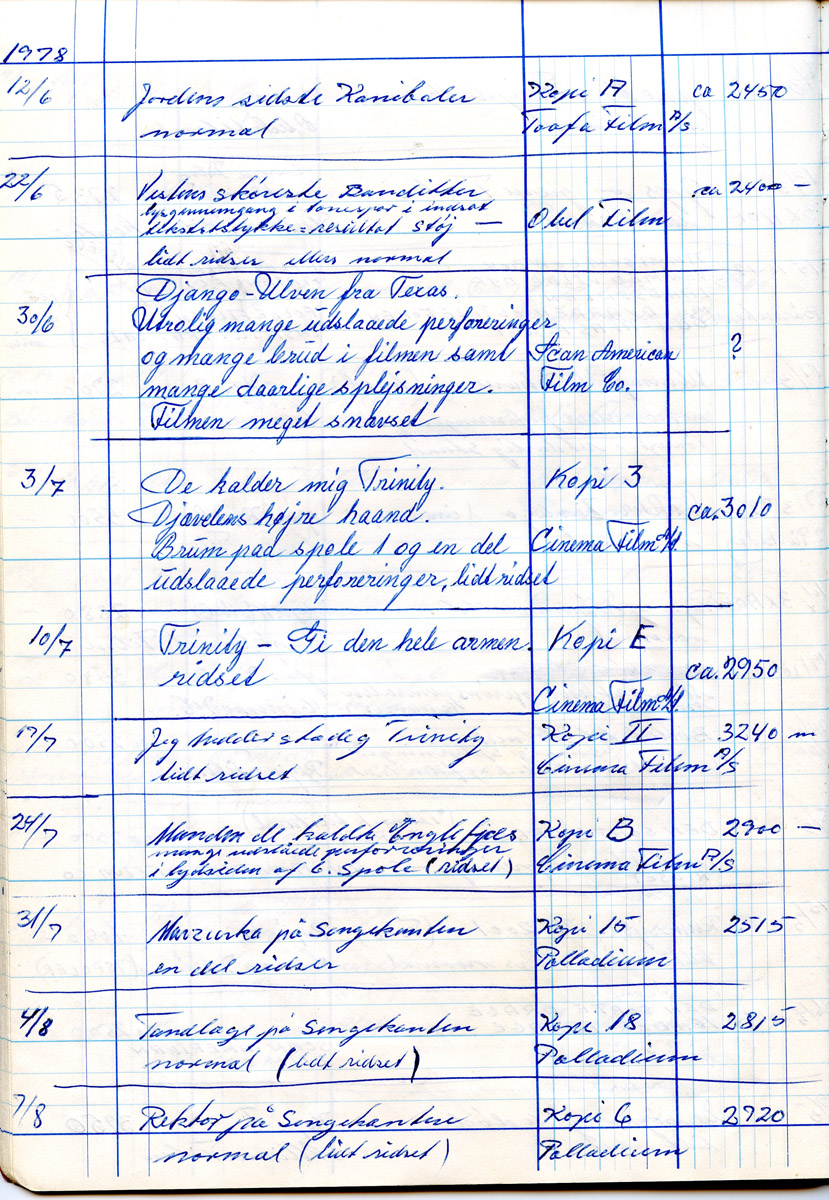 1978
12/6 Jordens sidste Kanibaler Kopi A ca 2450
normal Toofa Film A/S
22/6 Vestens skøreste Banditter ca 2400 —
lysgennemgang i tonespor i indsat
tekststykke = resultat støj — Obel Film
lidt ridser ellers normal
Django-Ulven fra Texas.
30/6 Utrolig mange udslaaede perforeringer
og mange brud i filmen samt Scan American ?
mange daarlige splejsninger. Film Co.
Filmen meget snavset
3/7 De kalder mig Trinity. Kopi 3
Djævelens højre haand. ca. 3010
Brum paa spole 1 og en del Cinema Film A/S.
udslaaede perforeringer, lidt ridset
10/7 Trinity – Gi den hele armen. Kopi E
ridset ca. 2950
Cinema Film A/S.
17/7 Jeg hedder stadig Trinity Kopi II 3240 m
lidt ridset Cinema Film A/S
24/7 Manden de kaldte Englefjæs Kopi B 2900 —
mange udslåede perforeringer
i lydsiden af 6. Spole (ridset) Cinema Film A/S
31/7 Mazurka på Sengekanten Kopi 15 2515
en del ridser Palladium
4/8 Tandlæge på Sengekanten Kopi 18 2815
normal (lidt ridset) Palladium
7/8 Rektor på Sengekanten Kopi 6 2720
normal (lidt ridset) Palladium